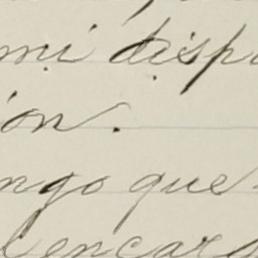 mi disp
ion.
ngo que
l encar